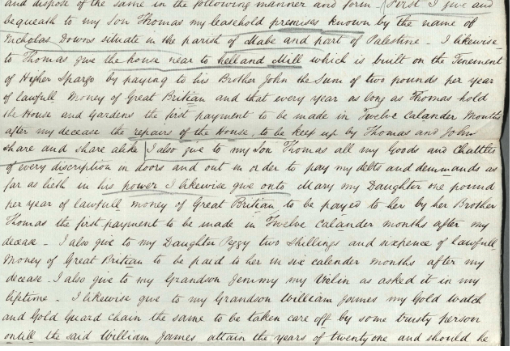 and dispose of the same in the following manner and form - First I give and
bequeath to my Son Thomas my leasehold premises known by the name of
Nicholas Downs situate in the parish of Mabe and part of Palestine - I likewise
to Thomas give the house near to Helland Mill which is built on the Tenement
of Higher Spargo by paying to his Brother John the Sum of two pounds per year
of lawfull Money of Great Britian and that every year as long as Thomas hold
the House and Gardens the first payment to be made in Twelve Calander Months
after my decease the repairs of the House to be keep up by Thomas and John
share and share alike I also give to my Son Thomas all my Goods and Chattles
of every discription in doors and out in order to pay my debts and demmands as
far as lieth in his power I likewise give onto Mary my Daughter one pound
per year of lawfull money of Great Britian to be payed to her by her Brother
Thomas the first payment to be made in Twelve calander months after my
decease - I also give to my Daughter Peggy two Shillings and sixpence of lawfull
Money of Great Britian to be paid is her in six calender months after my
decease - I also give to my Grandson Jemmy my Violin as asked it in my
liftime - I likewise give to my Grandson William James my Gold Watch
and Gold Guard chain the same to be taken care off by some trusty person
untill the said William James attain the years of twenty one and should he